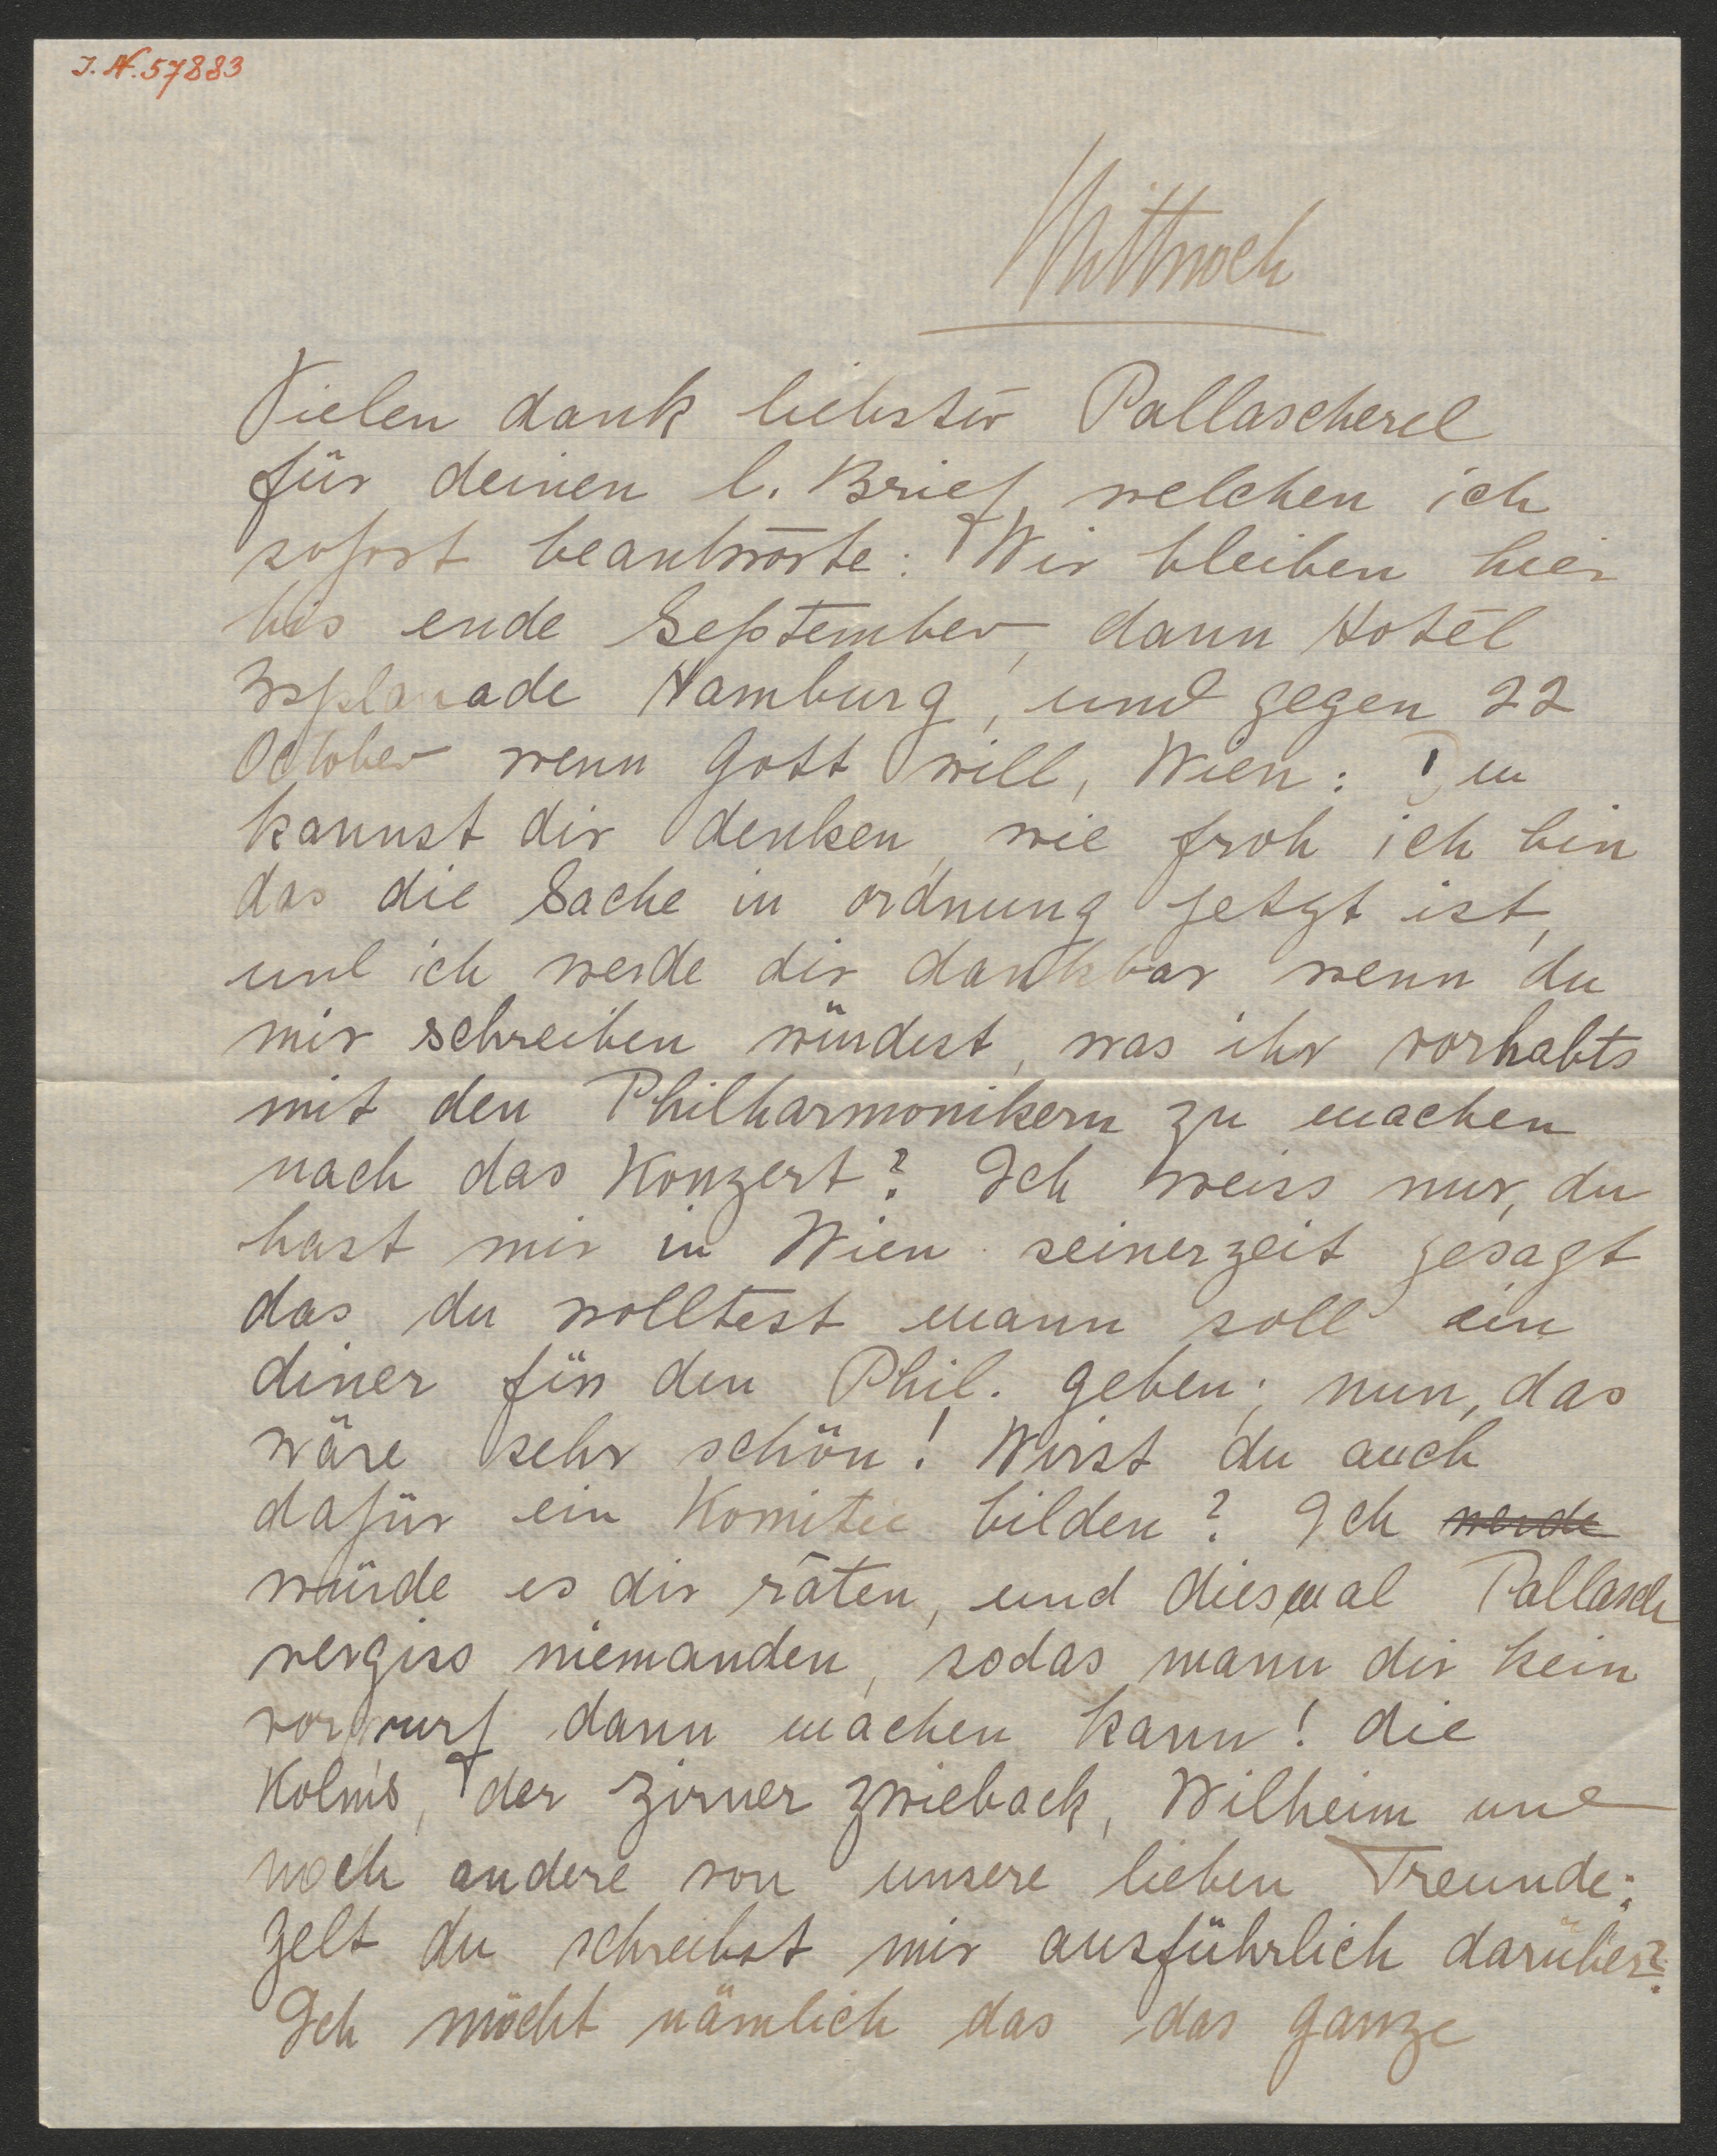 J. N. 57883
Mittwoch
Vielen dank liebster Pallascherel
für deinen l. Brief welchen ich
sofort beantworte: Wir bleiben hier
bis ende September, dann Hotel
Esplanade Hamburg, und gegen 22
October wenn Gott will, Wien: Du
kannst dir denken, wie froh ich bin
das die Sache in ordnung jetzt ist,
und ich werde dir dankbar wenn du
mir schreiben würdest, was ihr vorhabts
mit den Philharmonikern zu machen
nach das Konzert? Ich weiss nur, du
hast mir in Wien seinerzeit gesagt
das du wolltest mann soll ein
diner für den Phil. geben; nun, das
wäre sehr schön! Wirst du auch
dafür ein Komitee bilden? Ich werde
würde es dir raten, und diesmal Pallasch
vergiss niemanden, sodas mann dir kein
vorwurf dann machen kann! die
Kolm's, der Zirner Zwieback, Wilheim und
noch andere von unsere lieben Freunde;
gelt du schreibst mir ausführlich darüber?
Ich möcht nämlich das das ganze